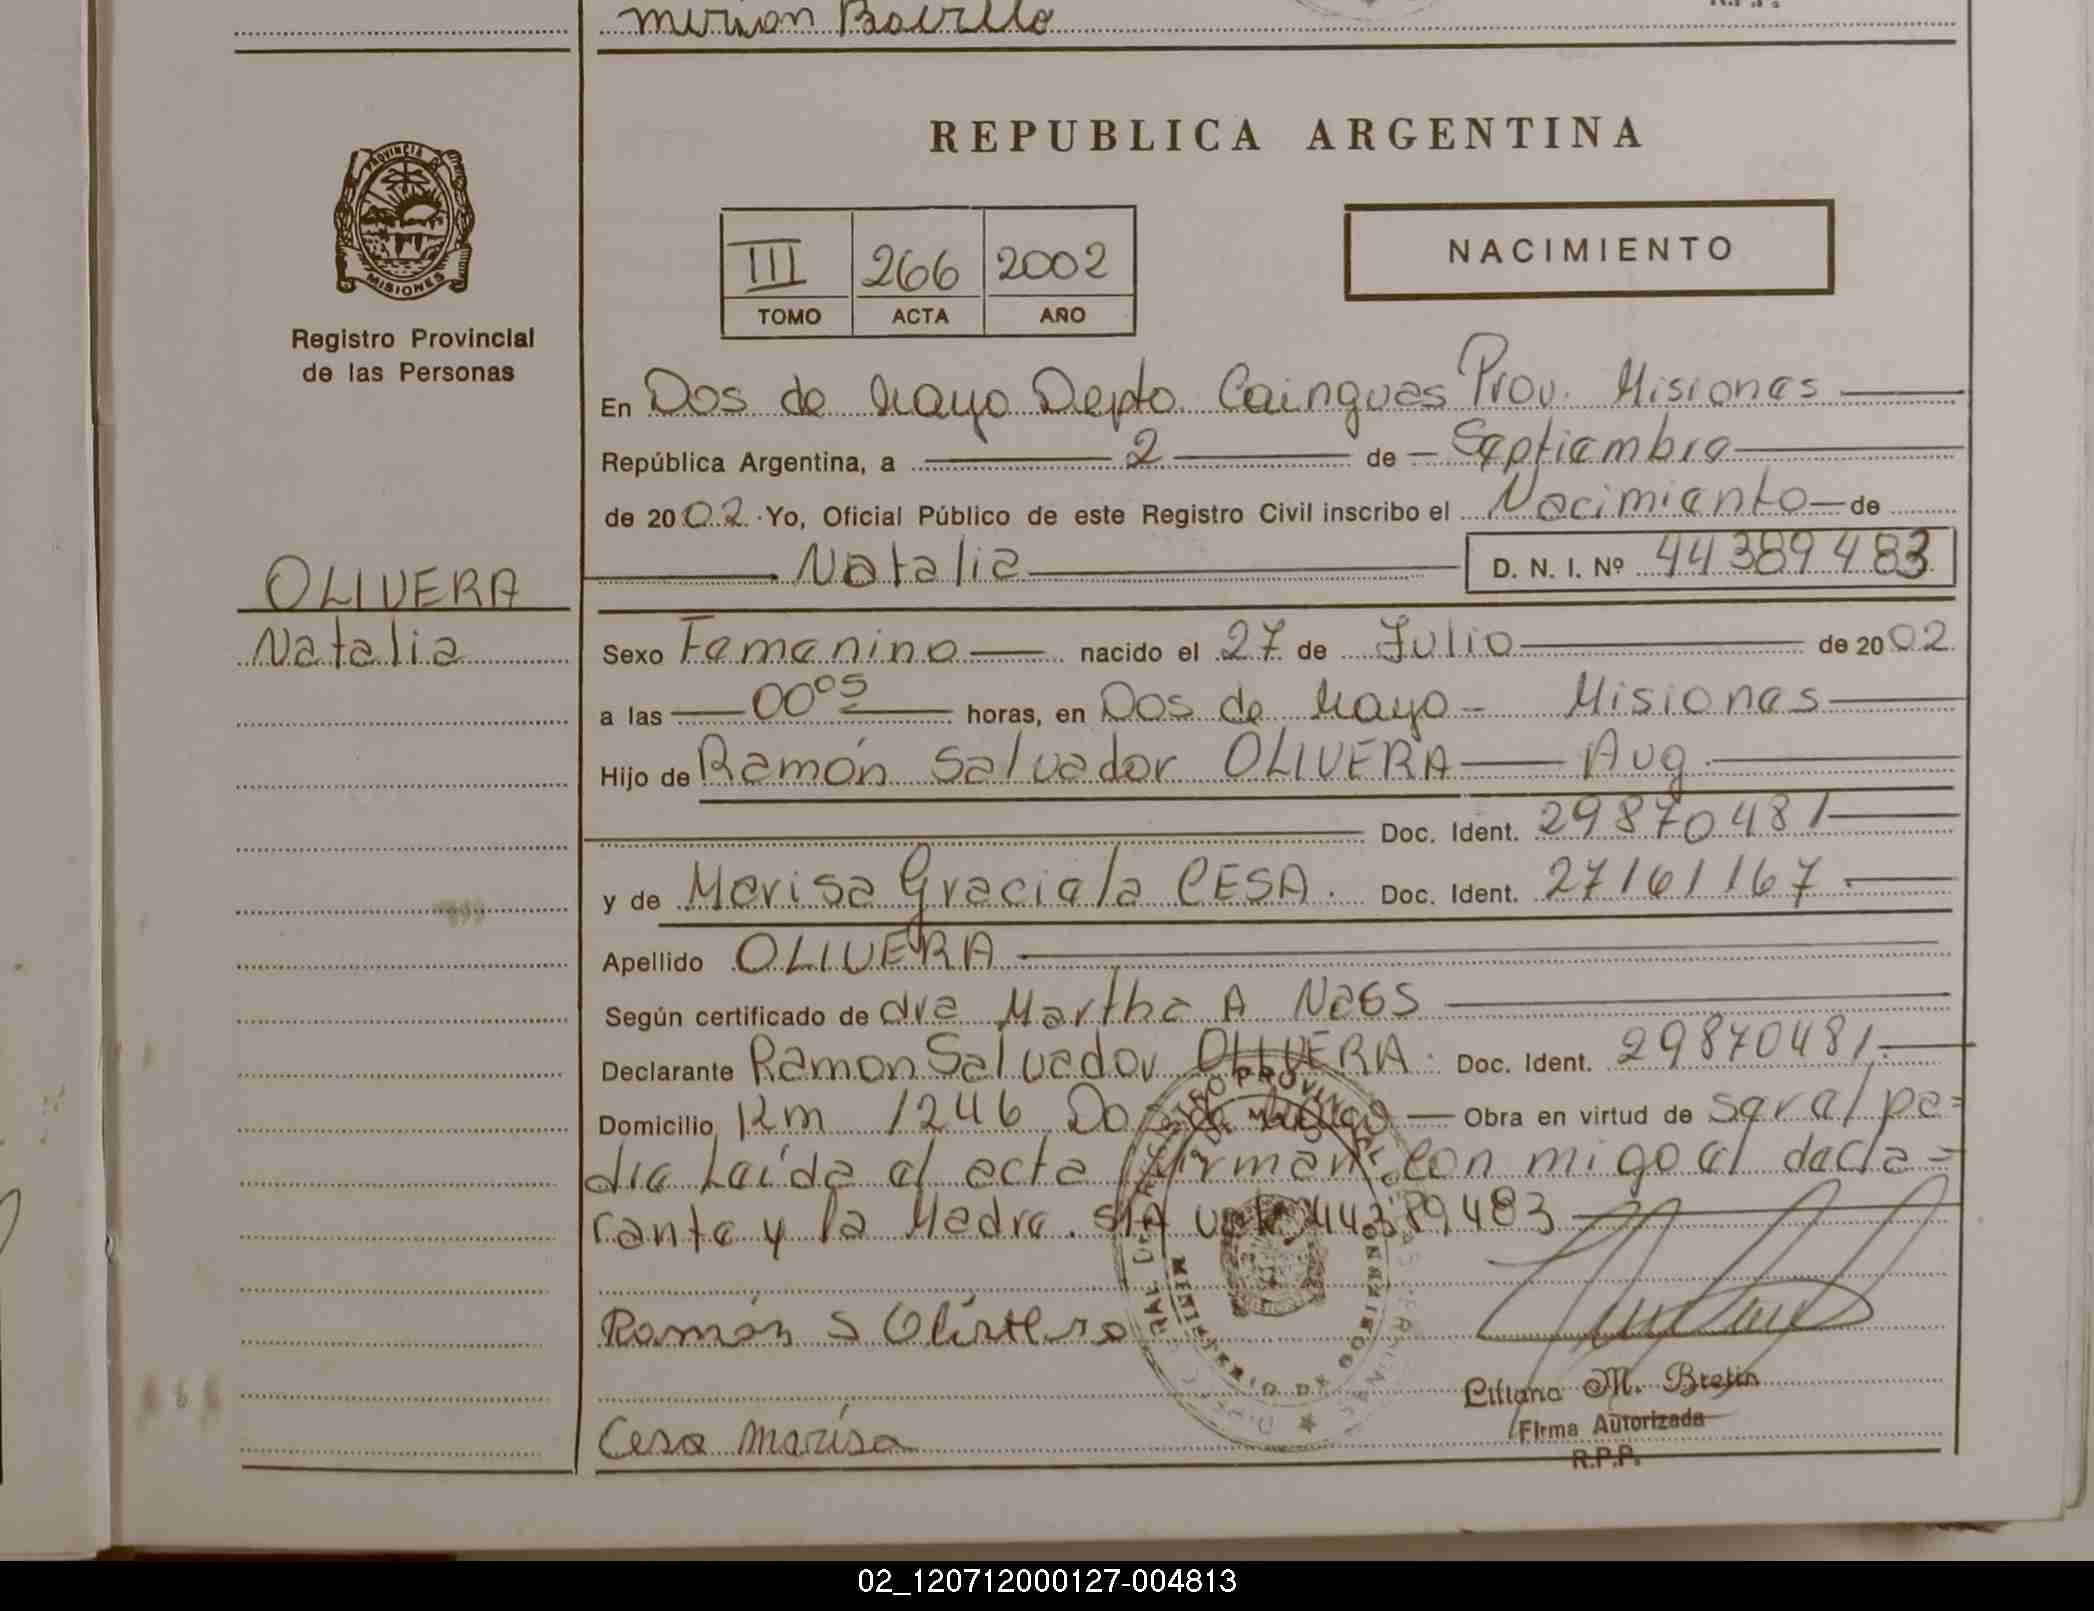 Mirian
REPUBLICA ARGENTINA
PROVINCIA DE
MISIONES
Registro Provincial
de las Personas
III 266 2002
TOMO ACTA AÑO
NACIMIENTO
En Dos de Mayo Depto. Cainguas Prov. Misiones
República Argentina, a 2 de Septiembre
de 2002 Yo, Oficial Público de este Registro Civil inscribo el Nacimiento de
Natalia D. N. I. Nº 44389483
OLIVERA
Natalia
Sexo Femenino nacido el 27 de Julio de 2002
a las 00 05 horas, en Dos de Mayo - Misiones
Hijo de Ramón Salvador OLIVERA Aug
Doc. Ident. 29870481
y de Marisa Graciela CESA. Doc. Ident. 27161167
Apellido OLIVERA
Según certificado de dra Martha A
Declarante Ramon Salvador OLIVERA Doc. Ident. 29870481
Domicilio Km 1246 Dos de Mayo Obra en virtud de ser al pe-
dia Leída el acta firman con migo el decla-
rante y la Madre. vale 44389483
Ramón S Olivera
Liliana M. Bretin
Firma Autorizada
R.P.P.
Cesa Marisa
02_120712000127-004813